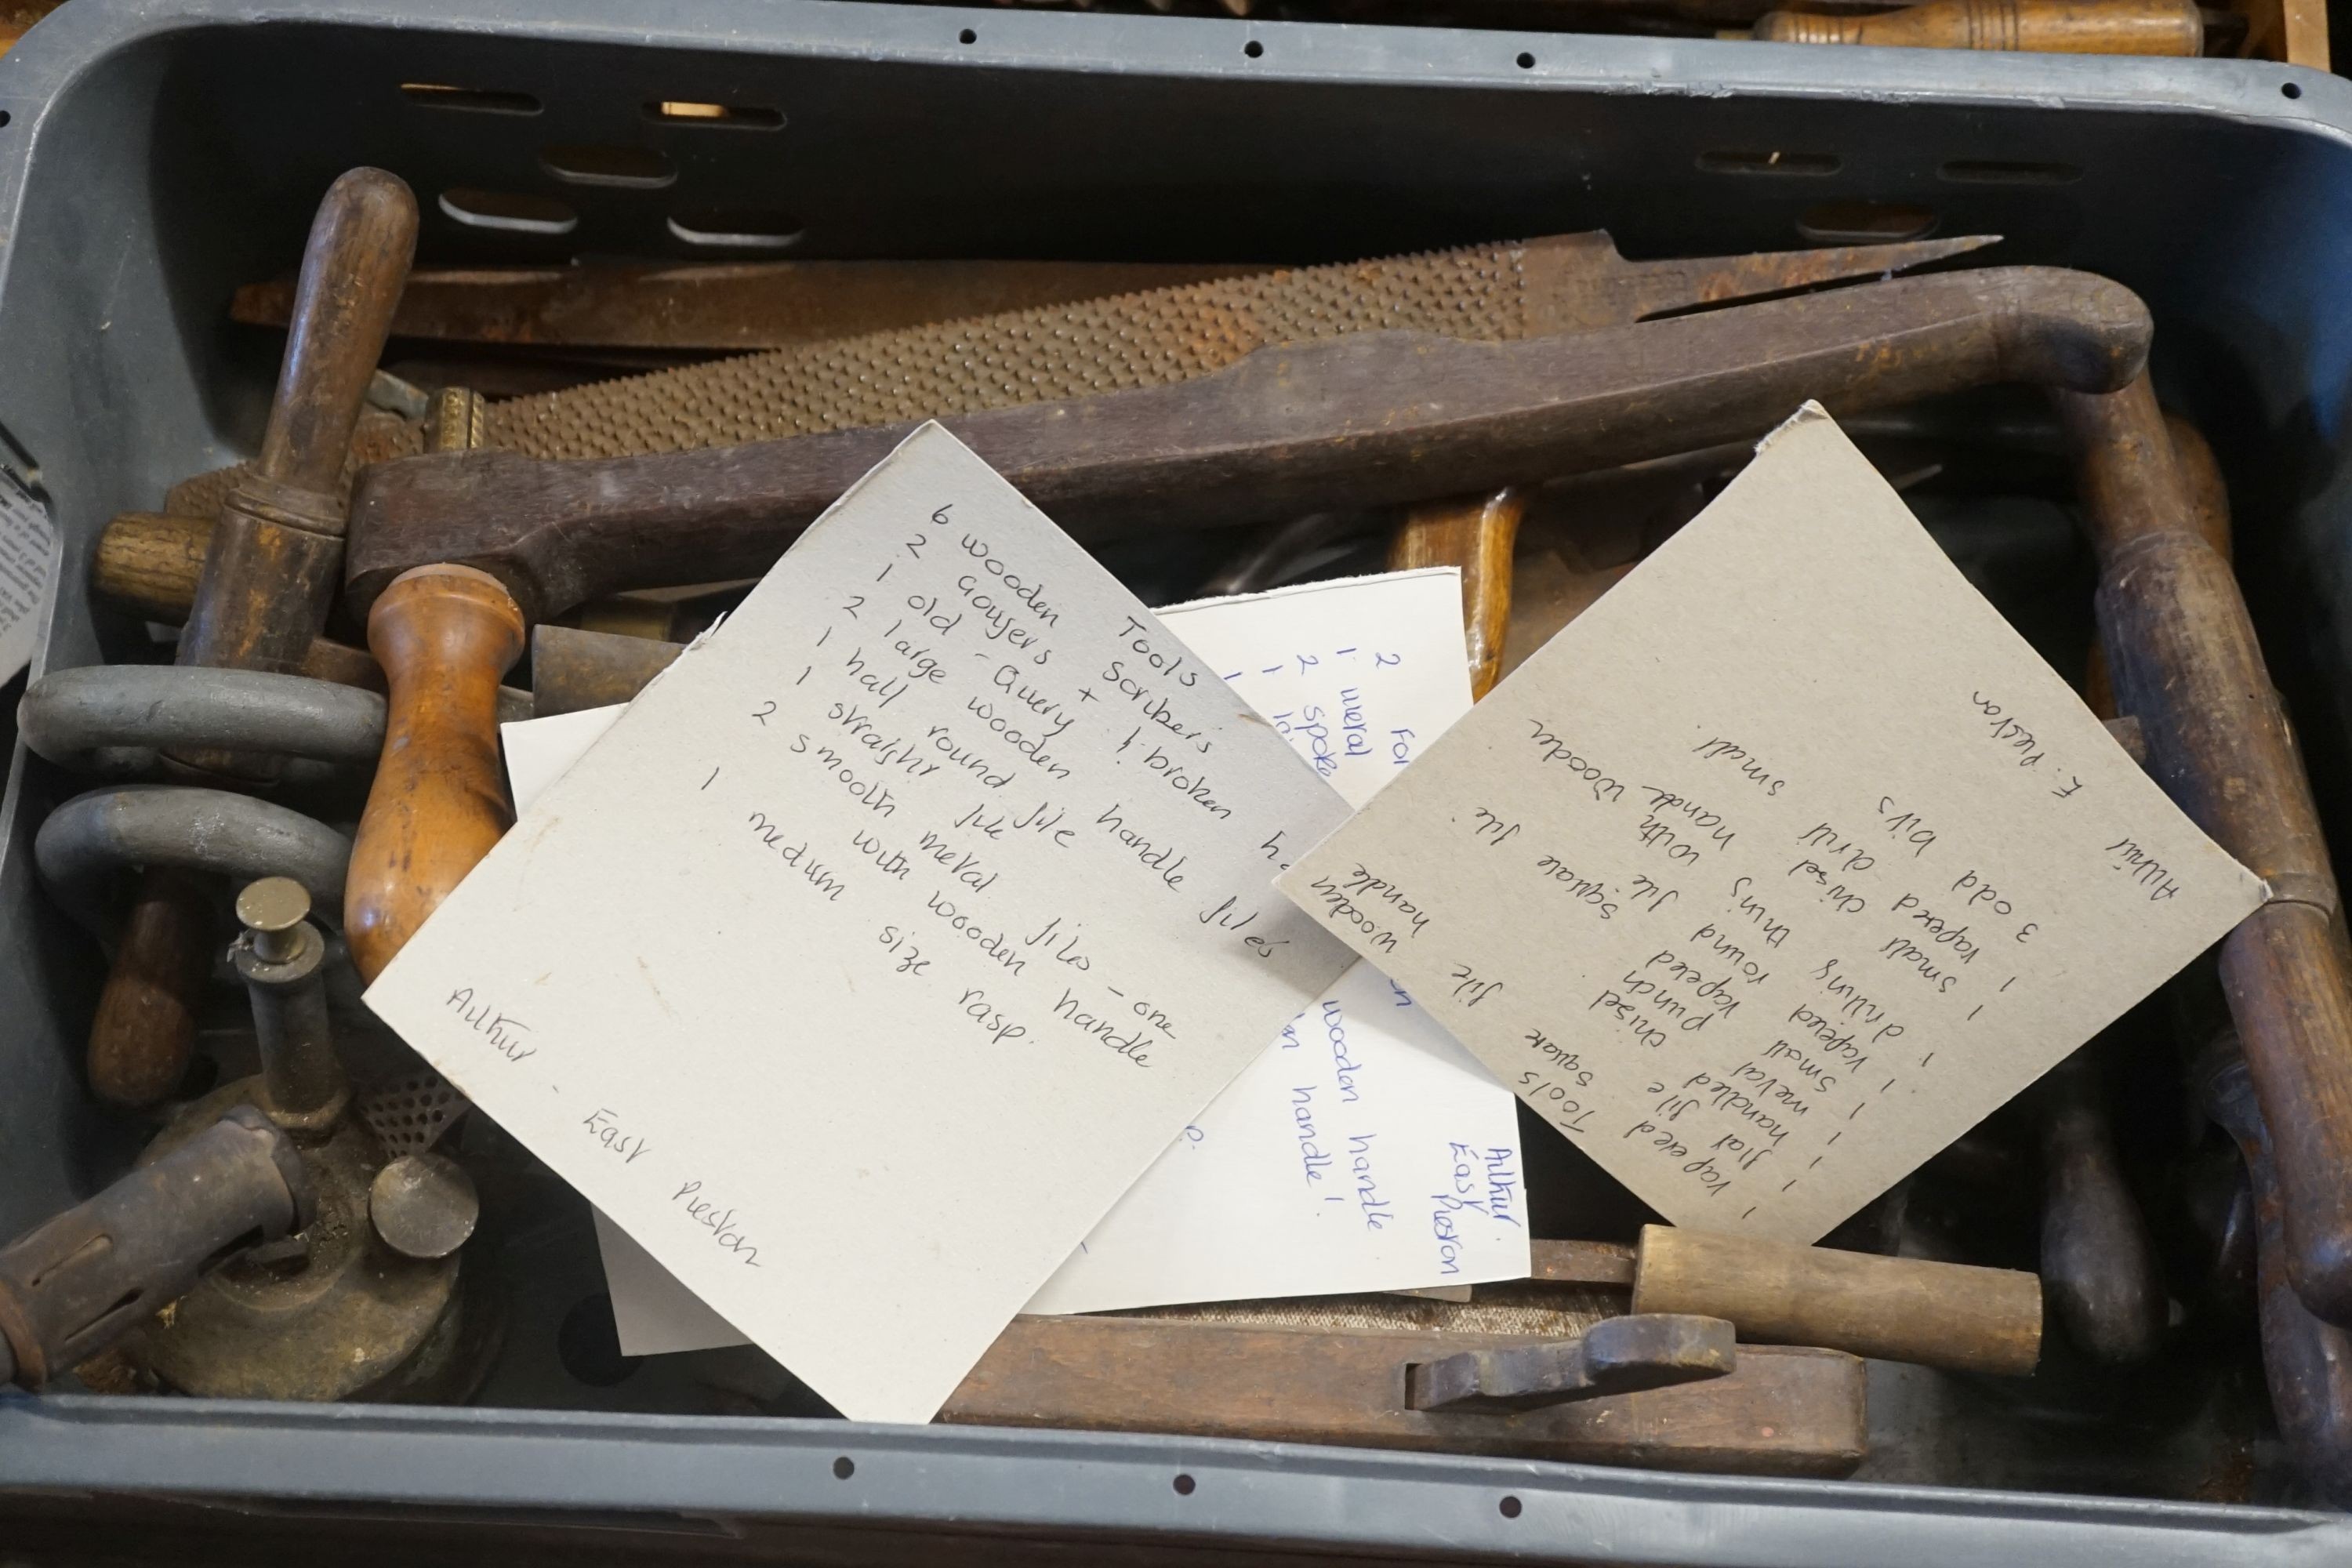 6 wooden Tools
2 Gougers + scribers
1 old - Query ! broken
2 large wooden handle files
1 half round file
1 straight file
2 smooth metal files - one
with wooden handle
1 medium size rasp.
Arthur - East Preston
2 For
1 metal
2 spoke
1
1
wooden handle
handle!
Arthur.
East Preston
Tools
1 tapered square file wooden handle
1 flat file
1 handled chisel
1 metal punch
1 small tapered round file square file
1 tapered thing with wooden handle
1 drilling chisel
1 small drill small
1 tapered
3 odd bits
Arthur E. Preston